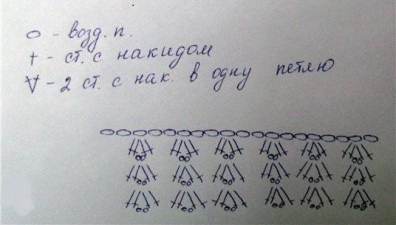 o - возд. п.
† - ст. с накидом
V - 2 ст. с нак. в одну петлю